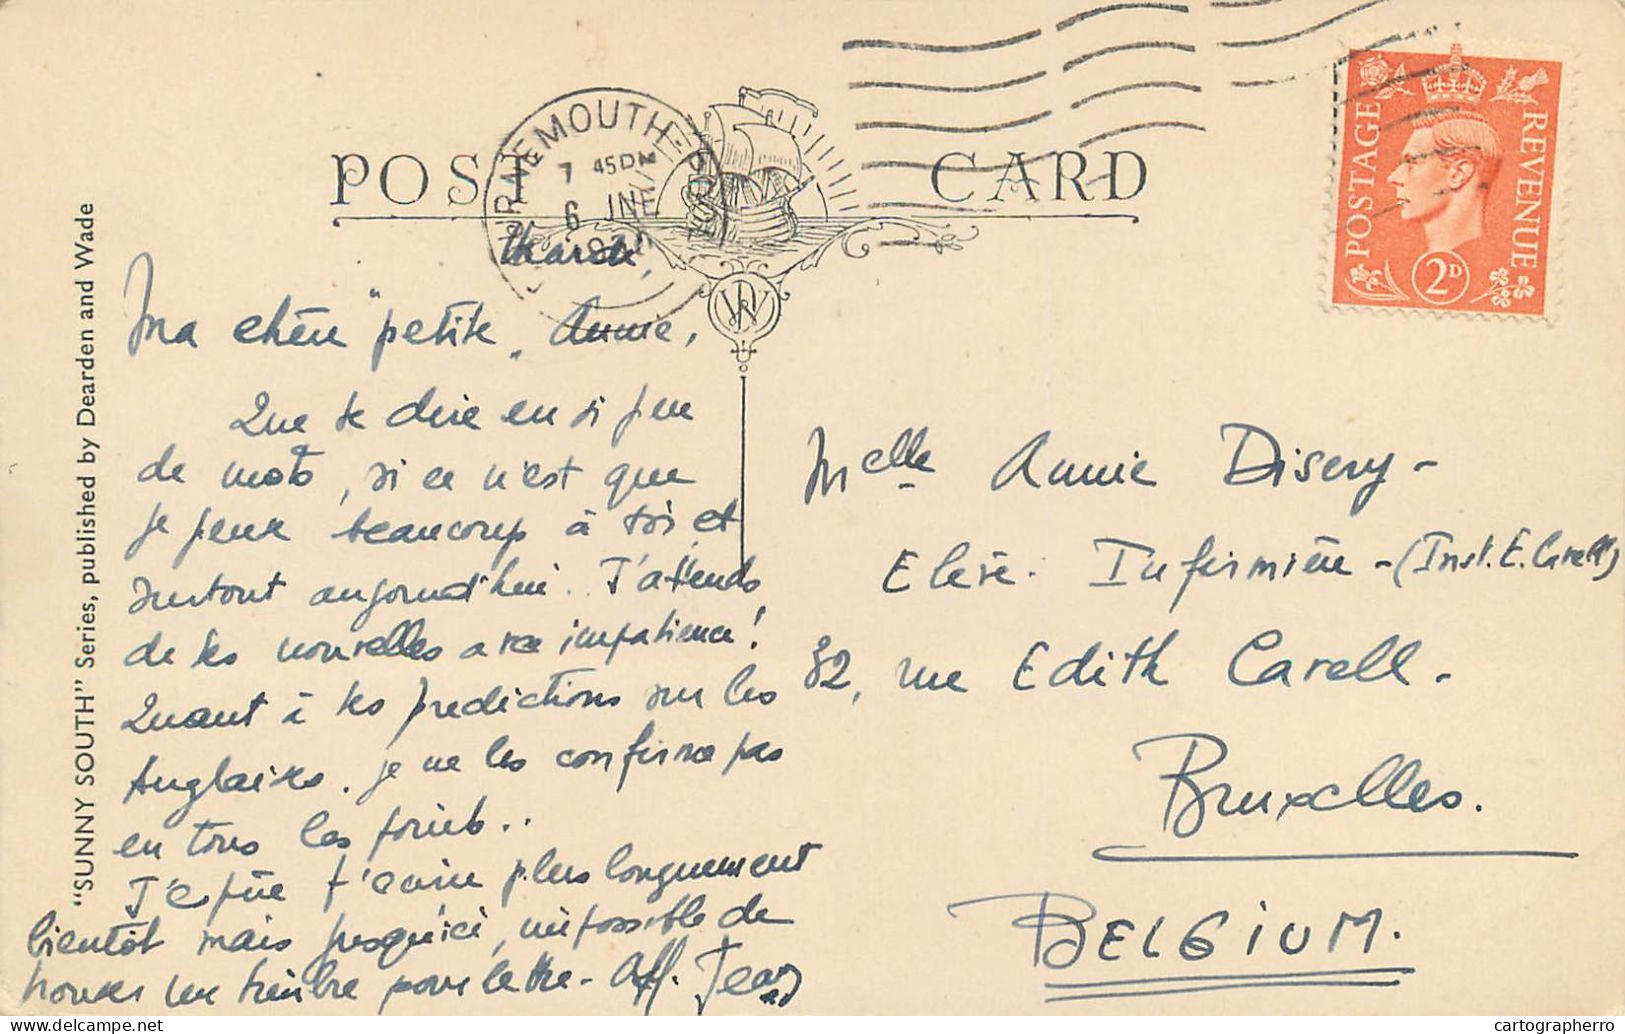 POST CARD
BOURNEMOUTH-POOLE
7 45 PM
6 JNE
POSTAGE REVENUE
2D
"SUNNY SOUTH" Series, published by Dearden and Wade
Mardi,
Ma chère "petite„ Annie,
Que te dire en si peu
de mots, si ce n'est que
je pense beaucoup à toi et
surtout aujourd'hui. J'attends
de tes nouvelles avec impatience!
Quant à tes predictions sur les
Anglaises, je ne les confirme pas
en tous les points..
J'espère t'écrire plus longuement
bientôt mais jusqu'ici, impossible de
trouver un timbre pour lettre - Aff. Jean
Melle Annie Disery -
Elève. Infirmière - (Inst. E. Cavell)
32, rue Edith Cavell.
Bruxelles.
BELGIUM.
cartographerro
delcampe.net